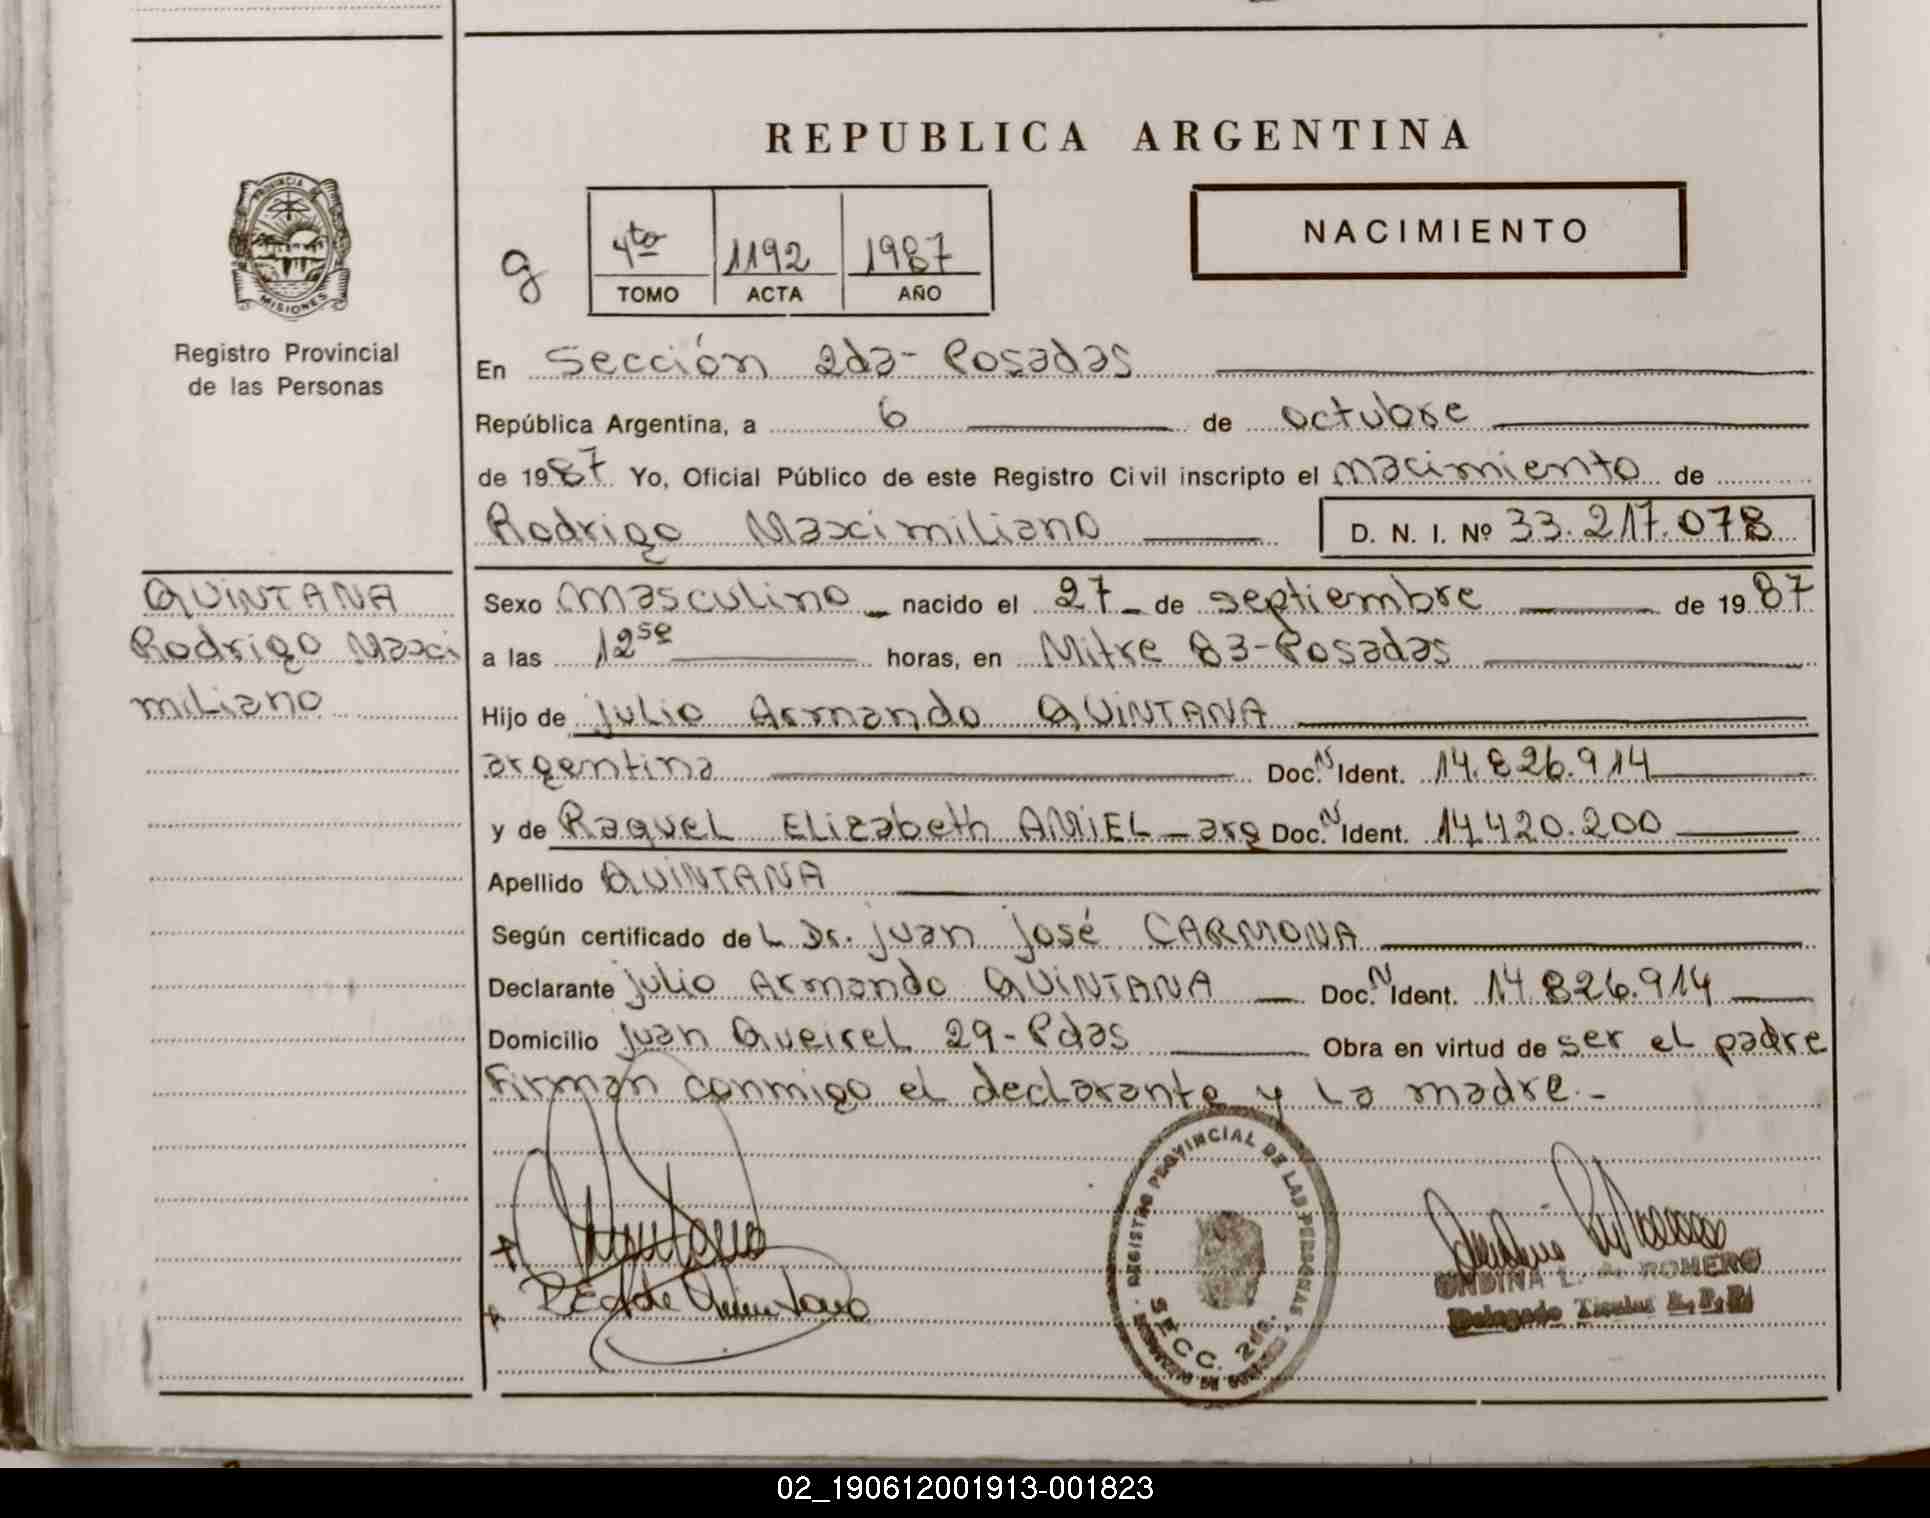 REPUBLICA ARGENTINA
PROVINCIA DE
MISIONES
Registro Provincial
de las Personas
g
4to 1192 1987
TOMO ACTA AÑO
NACIMIENTO
En Sección 2da- Posadas
República Argentina, a 6 de octubre
de 1987 Yo, Oficial Público de este Registro Civil inscripto el nacimiento de
Rodrigo Maximiliano D. N. I. Nº 33.217.078
QUINTANA
Rodrigo Maxi
miliano
Sexo masculino nacido el 27 de septiembre de 1987
a las 12 50 horas, en Mitre 83-Posadas
Hijo de julio Armando QUINTANA
argentina Doc. N Ident. 14.826.914
y de Raquel Elizabeth AMIEL - arg Doc. N Ident. 14.420.200
Apellido QUINTANA
Según certificado del Dr. juan josé CARMONA
Declarante julio Armando QUINTANA Doc. N Ident. 14.826.914
Domicilio juan Queirel 29- Pdas Obra en virtud de ser el padre
Firman conmigo el declarante y la madre.-
REGISTRO PROVINCIAL DE LAS PERSONAS
SECC. 2da.
ONDINA L. A. ROMERO
Delegado Titular R.P.P.
02_190612001913-001823